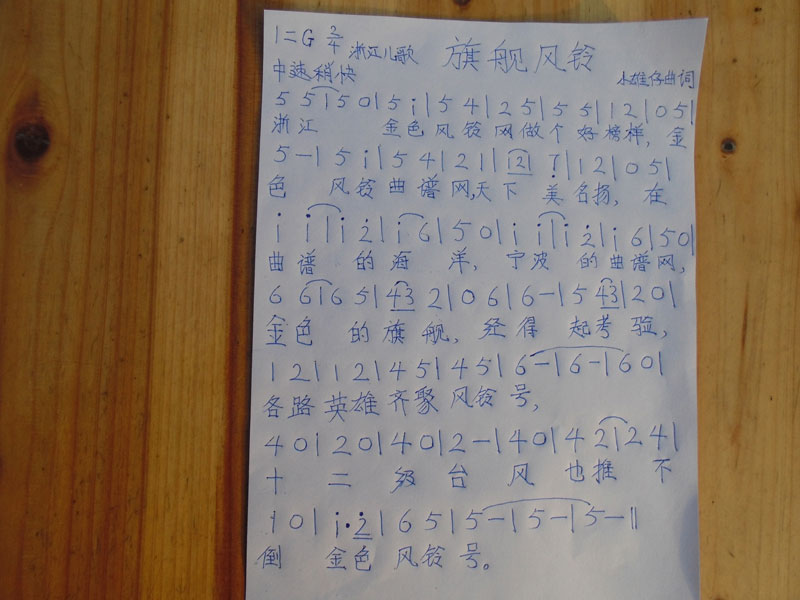 1=G 2/4 浙江儿歌 旗舰风铃
中速稍快 小雄仔曲词
5 5 | 5 0 | 5 i | 5 4 | 2 5 | 5 5 | 1 2 | 0 5 |
浙江 金色风铃网做个好榜样,金
5 – | 5 i | 5 4 | 2 1 | 2 7 | 1 2 | 0 5 |
色 风铃曲谱网,天下美名扬,在
i i | i 2 | i 6 | 5 0 | i i | i 2 | i 6 | 5 0 |
曲谱的海洋,宁波的曲谱网,
6 6 | 6 5 | 43 2 | 0 6 | 6 – | 5 43 | 2 0 |
金色的旗舰,经得起考验,
1 2 | 1 2 | 4 5 | 4 5 | 6 – | 6 – | 6 0 |
各路英雄齐聚风铃号,
4 0 | 2 0 | 4 0 | 2 – | 4 0 | 4 2 | 2 4 |
十二级台风也推不
1 0 | i· 2 | 6 5 | 5 – | 5 – | 5 – ||
倒 金色风铃号。